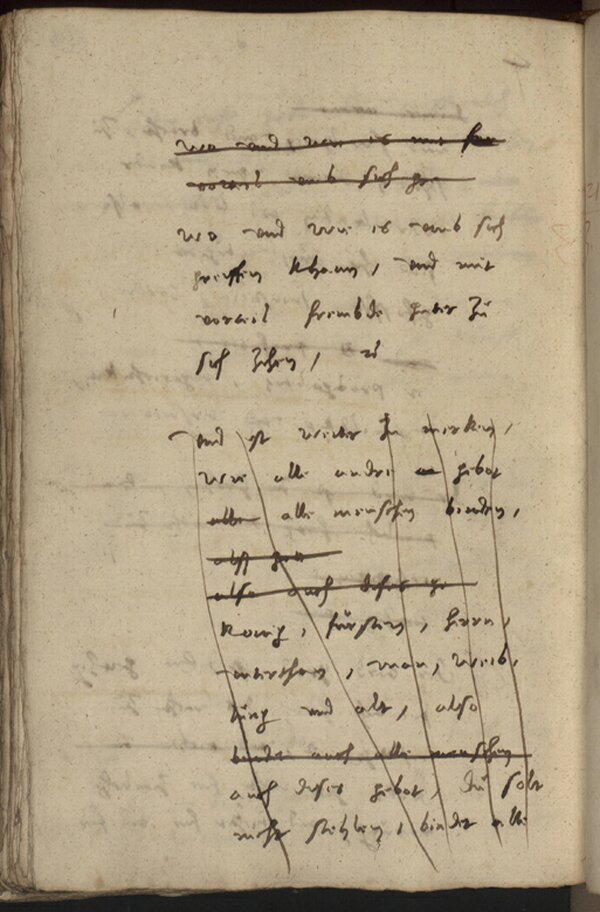 wo und wie es mit
vorteil umb sich
wo und wie es umb sich
greiffen khann, und mit
vorteil frembde guter zu
sich zihen, 
und ist weiter zu merken,
wie alle andre gebot
alle alle menschen binden,
also
also auch dises
Konig, fürsten, herrn,
unterthan, man, weib,
jung und alt, also
bindet auch alle menschen
auch dises gebot, du solt
nicht stehlen, bindet alle